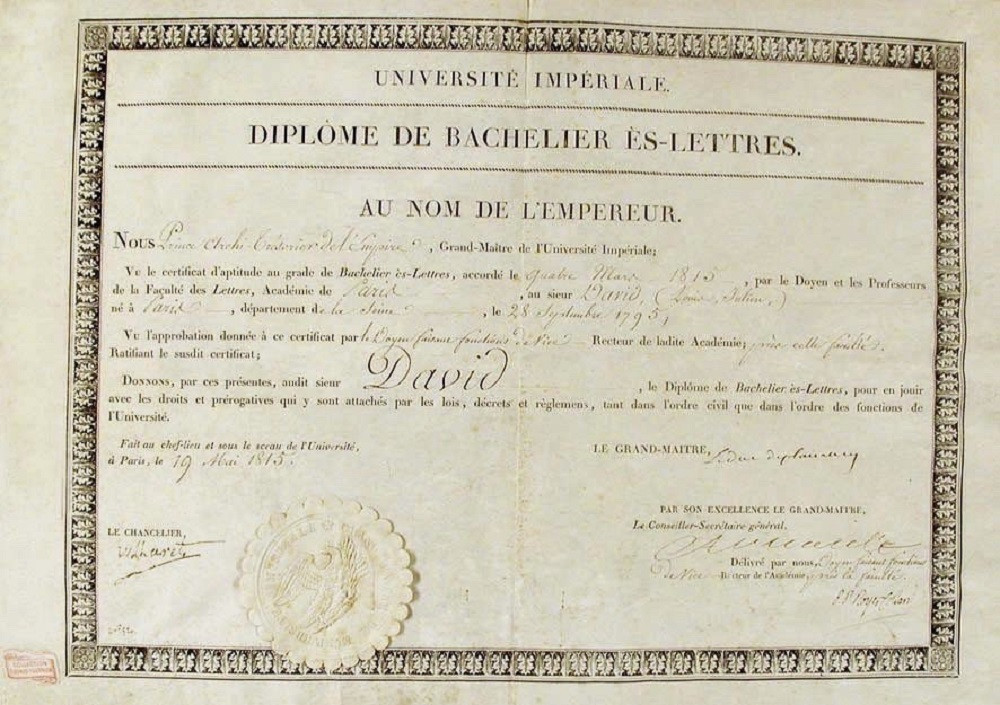 UNIVERSITÉ IMPÉRIALE.
DIPLÔME DE BACHELIER ÈS-LETTRES.
AU NOM DE L'EMPEREUR.
NOUS Prince Archi-Trésorier de l'Empire, Grand-Maître de l'Université Impériale;
Vu le certificat d'aptitude au grade de Bachelier ès-Lettres, accordé le quatre Mars 1815, par le Doyen et les Professeurs
de la Faculté des Lettres, Académie de Paris, au sieur David, (Louis, Julien,)
né à Paris, département de la Seine, le 28 Septembre 1795,
Vu l'approbation donnée à ce certificat par le Doyen faisant fonctions de Vice Recteur de ladite Académie; près cette faculté.
Ratifiant le susdit certificat;
DONNONS, par ces présentes, audit sieur David, le Diplôme de Bachelier ès-Lettres, pour en jouir
avec les droits et prérogatives qui y sont attachés par les lois, décrets et règlemens, tant dans l'ordre civil que dans l'ordre des fonctions de
l'Université.
Fait au chef-lieu et sous le sceau de l'Université,
à Paris, le 19 Mai 1815.
LE GRAND-MAITRE,
PAR SON EXCELLENCE LE GRAND-MAITRE,
Le Conseiller-Secrétaire-général.
LE CHANCELIER,
Villaret
Délivré par nous, Doyen faisant fonctions
de Vice Recteur de l'Académie, près la faculté.